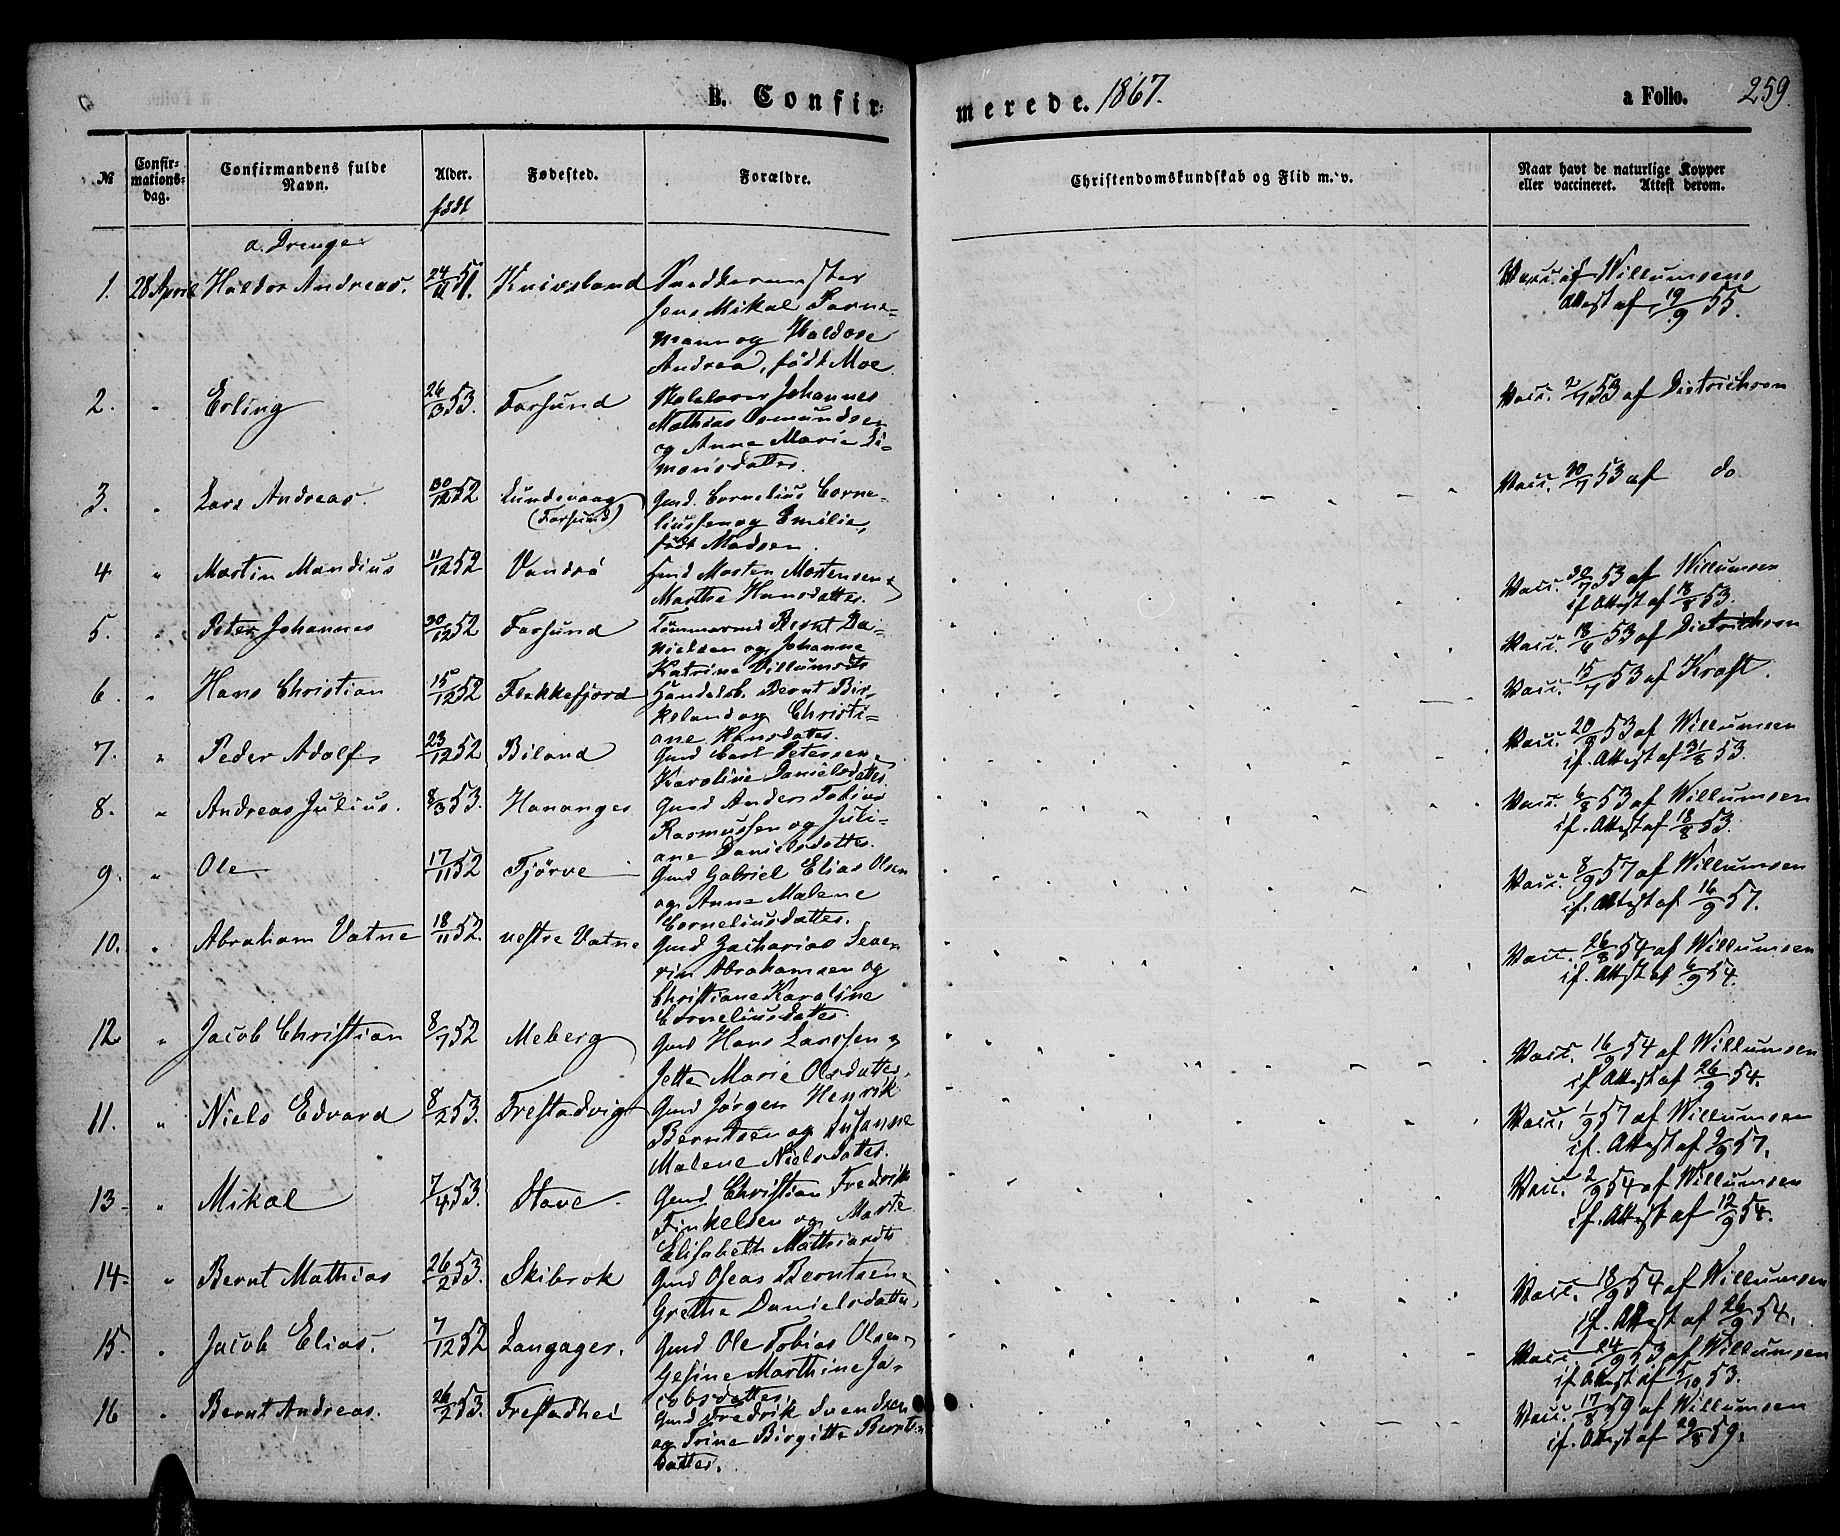 B. Confir=
merede. 1867.
a Folio. 259
№
Confir=
mations=
dag.
Confirmandens fulde
Navn.
Alder.
født
Fødested.
Forældre.
Christendomskundskab og Flid m. v.
Naar havt de naturlige Kopper
eller vaccineret. Attest derom.
a. Drenge
1. 28 April Haldor Andreas. 24/11 51. Knivsland
Jens Mikal
mann og Haldore
Andrea, født Moe
Vacc. if Willumsens
Attest af 19/9 55.
2. " Erling 26/3 53. Farsund Johannes
Mathias Osmundsen
og Anne Marie Si=
monsdatter.
Vacc. 2/7 53 af Dietrichson
3. " Lars Andreas 30/12 52 Lundevaag Gmd. Cornelius Corne=
(Farsund) liussen og Emilie,
født Madsen.
Vacc. 30/7 53 af do
4 " Martin Mandius 11/12 52 Vandsö Gmd Morten Mortensen &
Marthe Hansdatter.
Vacc. 30/7 53 af Willumsen
if Attest af 18/8 53.
5. " Peter Johannes 30/12 52 Farsund Tömmermd Bernt Da=
nielsen og Johanne
Katrine Villumsdtr
Vacc. 18/6 53 af Dietrichson
6. " Hans Christian 15/12 52 Flekkefjord Handelsb. Bernt Bir=
keland og Christi=
ane Hansdatter.
Vacc. 15/7 53 af Kraft.
7. " Peder Adolf 23/12 52 Biland Gmd Carl Petersen &
Karoline Danielsdatter
Vacc. 20/8 53 af Willumsen
if. Attest af 31/8 53.
8. " Andreas Julius. 8/3 53. Hananger Gmd Anders Tobias
Rasmussen og Juli=
ane Danielsdatter.
Vacc. 6/8 53 af Willumsen
if. Attest af 18/8 53.
9. " Ole 17/11 52 Tjörve Gmd Gabriel Elias Olsen
og Anne Malene
Corneliusdatter.
Vacc. 8/9 57 af Willumsen
if. Attest af 16/9 57.
10. " Abraham Vatne 18/11 52. vestre Vatne Gmd Zacharias Seve
rin Abrahamsen og
Christiane Karoline
Corneliusdatter
Vacc. 26/8 54 af Willumsen
if. Attest af 6/9 54.
12 " Jacob Christian 8/9 52 Meberg Gmd Hans Larssen &
Jette Marie Olsdatter.
Vacc. 16/9 54 af Willumsen
if Attest af 26/9 54.
11. " Niels Edvard 8/2 53. Frestadvig Gmd Jørgen Henrik
Berntsen og Susanne
Malene Nielsdatter.
Vacc. 1/9 57 af Willumsen
if. Attest af 9/9 57.
13 " Mikal 7/4 53. Stave. Gmd Christian Fredrik
Finkelsen og Marte
Elisabeth Mathiasdtr
Vacc. 2/9 54 af Willumsen
if. Attest af 12/9 54.
14 " Bernt Mathias 26/2 53. Skibrok Gmd Oseas Berntsen &
Grethe Danielsdatter.
Vacc. 18/9 54 af Willumsen
if. Attest af 26/9 54.
15. " Jacob Elias. 7/12 52 Langager. Gmd Ole Tobias Olsen &
Gesine Marthine Ja=
cobsdatter.
Vacc. 24/9 53 af Willumsen
if Attest af 5/10 53.
16 " Bernt Andreas. 26/2 53. Frestadhei Gmd Fredrik Svendsen
og Trine Birgitte Bernts
datter.
Vacc. 17/8 59 af Willumsen
if. Attest af 29/8 59.